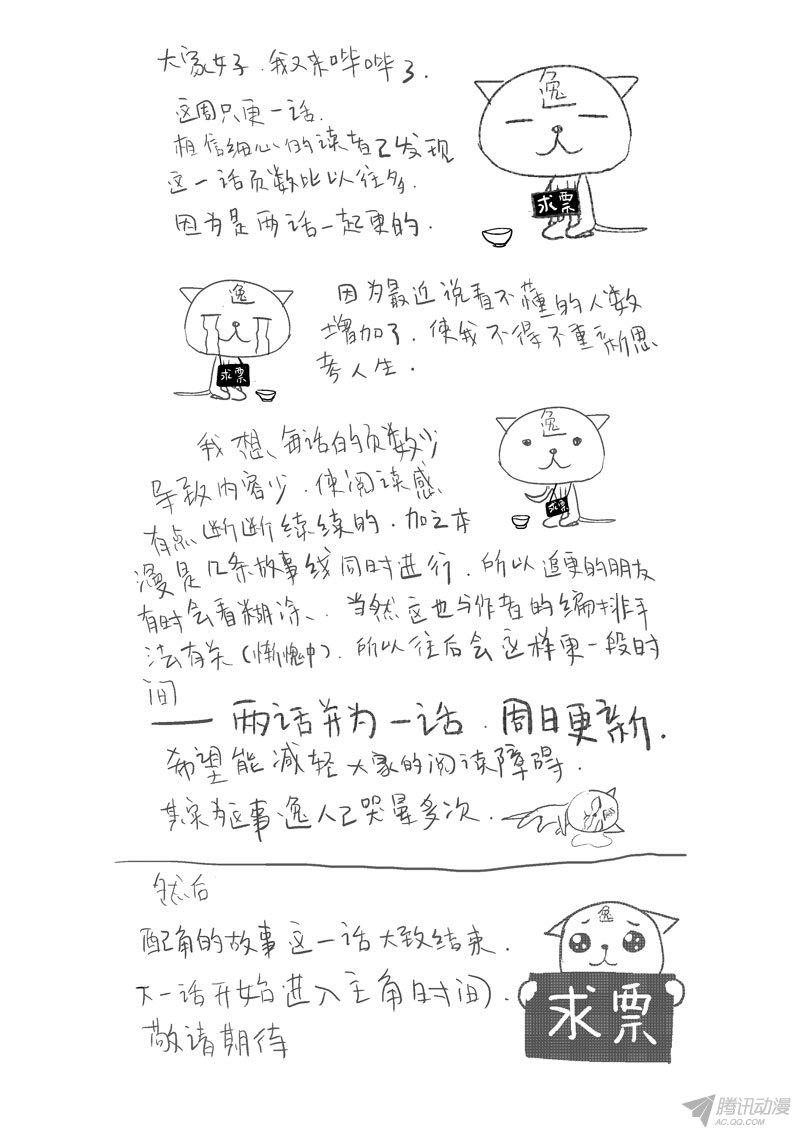 大家好,我又来哔哔了.
逸
这周只更一话.
相信细心的读者已发现
这一话页数比以往多.
因为是两话一起更的.
求票
逸
因为最近说看不懂的人数
增加了,使我不得不重新思
考人生.
求票
逸
我想、每话的页数少
导致内容少,使阅读感
有点断断续续的,加之本
求票
漫是几条故事线同时进行,所以追更的朋友
有时会看糊涂、当然这也与作者的编排手
法有关(惭愧中),所以往后会这样更一段时
间
——两话并为一话,周日更新.
希望能减轻大家的阅读障碍.
其实为这事逸人已哭晕多次.
然后
逸
配角的故事这一话大致结束.
下一话开始进入主角时间).
敬请期待
求票
腾讯动漫
AC.QQ.COM